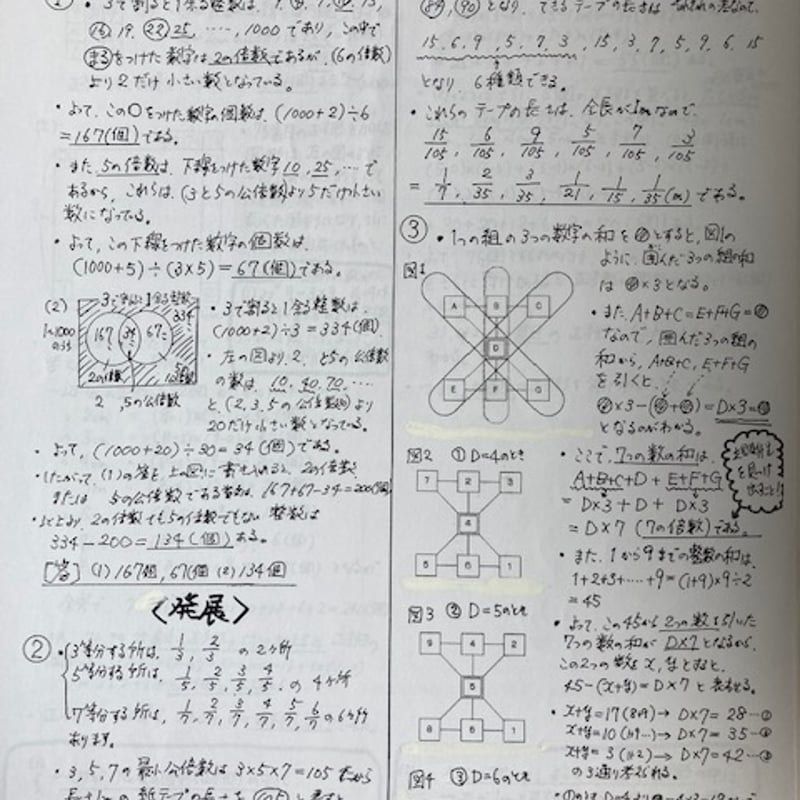 ・3で割ると1余る整数は、1, 4, 7, 10, 13,
16, 19, 22, 25, ‥‥, 1000 であり、この中で
まるをつけた数字は 2の倍数であるが、(6の倍数)
より2だけ小さい数となっている。
・よって、この○をつけた数字の個数は、(1000+2)÷6
=167(個)である。
・また、5の倍数は、下線をつけた数字10, 25, ‥‥で
あるから、これらは、(3と5の公倍数)より5だけ小さい
数になっている。
・よって、この下線をつけた数字の個数は、
(1000+5)÷(3×5)=67(個)である。
(2)
3で割ると1余る整数
334
1~1000
のうち
167 34 67
2の倍数
5の倍数
2, 5の公倍数
・3で割ると1余る整数は、
(1000+2)÷3=334(個)
・左の図より、2, と5の公倍数
の数は、10, 40, 70, ‥‥
と、(2, 3, 5の公倍数)より
20だけ小さい数となっている。
・よって、(1000+20)÷30=34(個)である。
・したがって、(1)の答を上の図に書き入れると、2の倍数
または 5の公倍数である整数は、167+67-34=200(個)
・以上より、2の倍数でも5の倍数でもない整数は
334-200=134(個)ある。
[答] (1) 167個, 67個 (2) 134個
〈発展〉
②
・3等分する所は、1/3, 2/3 の2ヶ所
5等分する所は、1/5, 2/5, 3/5, 4/5, の4ヶ所
7等分する所は、1/7, 2/7, 3/7, 4/7, 5/7, 6/7 の6ヶ所
あります。
・3, 5, 7の最小公倍数は 3×5×7=105 だから
となり、できるテープの長さは
15, 6, 9, 5, 7, 3, 15, 3, 7, 5, 9, 6, 15
となり、6種類できる。
・これらのテープの長さは、全長が1mなので、
15/105, 6/105, 9/105, 5/105, 7/105, 3/105
= 1/7, 2/35, 3/35, 1/21, 1/15, 1/35(m)である。
③
・1つの組の3つの数字の和を㋐とすると、図1の
ように、囲んだ3つの組の和
は ㋐×3となる。
図1
A B C
D
E F G
・また、A+B+C=E+F+G=㋐
なので、囲んだ3つの組の
和から、A+B+C, E+F+G
を引くと、
㋐×3-(㋐+㋐)=D×3=㋐
となるのがわかる。
図2 ① D=4のとき
7 2 3
4
5 6 1
・ここで、7つの数の和は、
A+B+C+D+E+F+G
=D×3+D+D×3
=D×7 (7の倍数)である。
を見つけ
出すこと!!
・また、1から9までの整数の和は、
1+2+3+‥‥+9=(1+9)×9÷2
=45
図3 ② D=5のとき
9 4 2
5
8 6 1
・よって、この45から2つの数を引いた
7つの数の和が D×7となるから、
この2つの数を x, yとすると、
45-(x+y)=D×7 と表せる。
・x+y=17(8+9)→ D×7= 28 ‥①
x+y=10(1+9‥)→ D×7= 35 ‥②
x+y= 3(1+2)→ D×7= 42 ‥③
の3通り考えられる。
図4 ③ D=6のとき